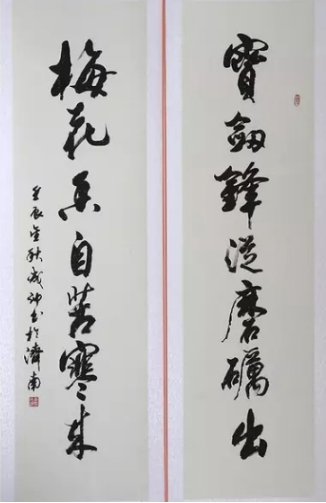 寶劍鋒從磨礪出
梅花香自苦寒来
壬辰金秋成书於濟南